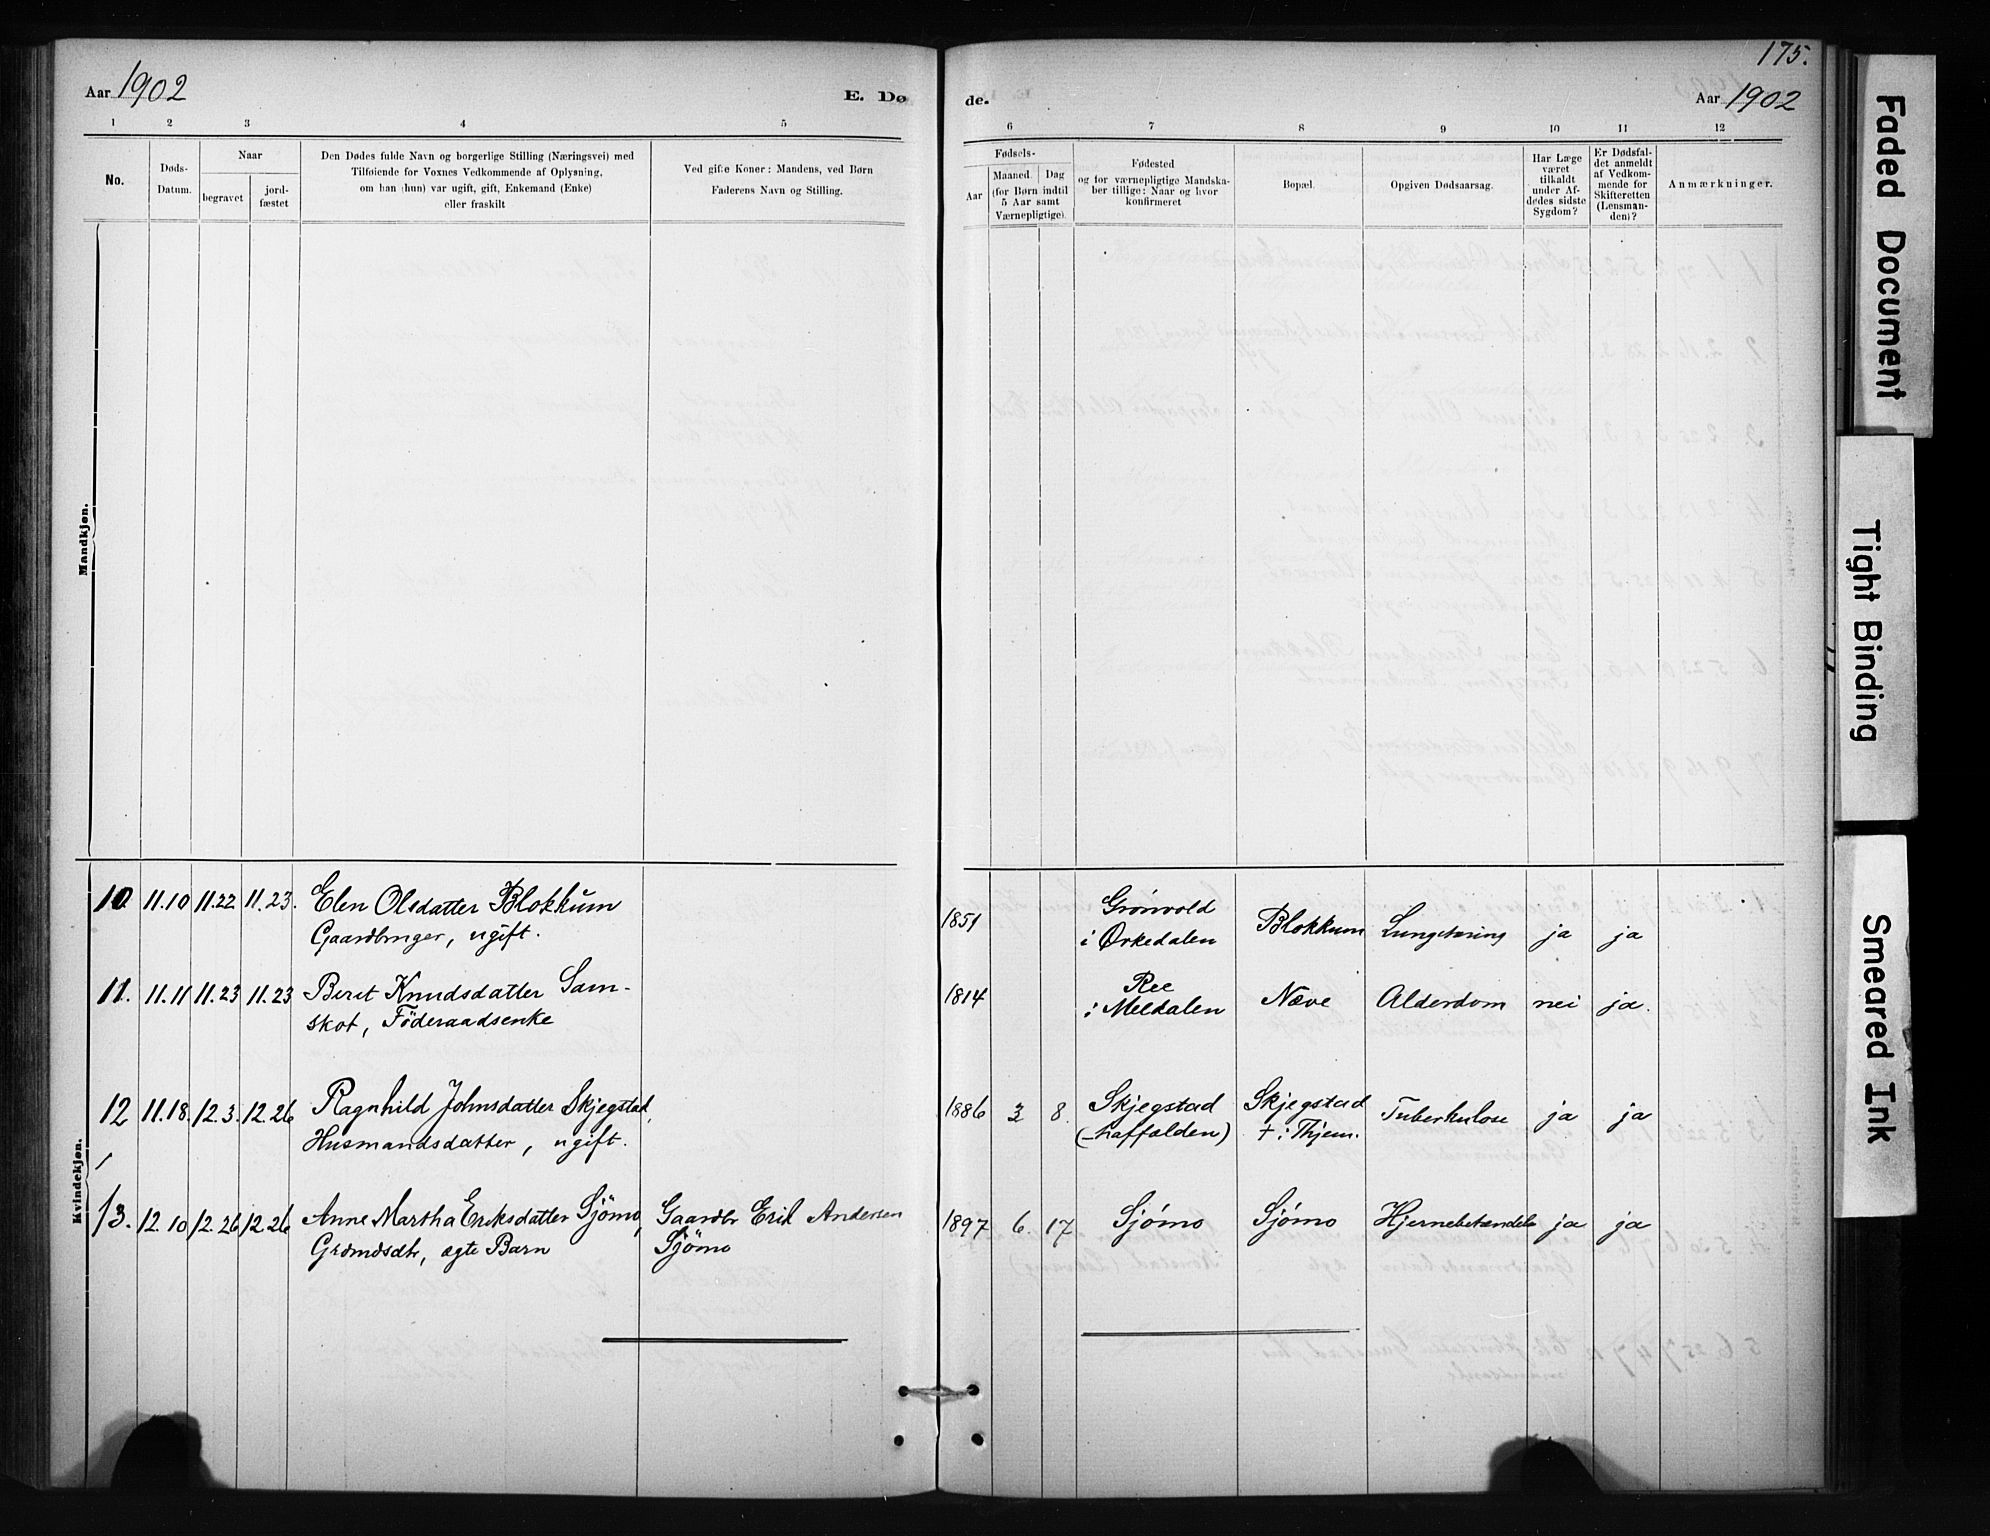 175.
Aar 1902
E. Dø
de.
Aar 1902
1 2 3 4 5
6 7 8 9 10 11 12
No.
Døds-
Datum.
Naar
begravet
jord-
fæstet
Den Dødes fulde Navn og borgerlige Stilling (Næringsvei) med
Tilføiende for Voxnes Vedkommende af Oplysning,
om han (hun) var ugift, gift, Enkemand (Enke)
eller fraskilt
Ved gifte Koner: Mandens, ved Børn
Faderens Navn og Stilling.
Fødsels-
Aar
Maaned. Dag
(for Børn indtil
5 Aar samt
Værnepligtige).
Fødested
og for værnepligtige Mandska-
ber tillige: Naar og hvor
konfirmeret
Bopæl.
Opgiven Dødsaarsag.
Har Læge
været
tilkaldt
under Af-
dødes sidste
Sygdom?
Er Dødsfal-
det anmeldt
af Vedkom-
mende for
Skifteretten
(Lensman-
den)?
Anmærkninger.
Mandkjøn.
Kvindekjøn.
10. 11.10 11.22 11.23. Elen Olsdatter Blokkum
Gaardbruger, ugift.
1851
Grönvold
i Orkedalen
Blokkum Lungetæring ja ja
11. 11.11 11.23 11.23 Beret Knudsdatter Sam-
skot, Föderaadsenke
1814
Ree
i Meldalen
Næve Alderdom nei ja.
12 11.18. 12.3. 12.26 Ragnhild Johnsdatter Skjegstad,
Husmandsdatter, ugift.
1886 3 8. Skjegstad
Skjegstad
† i Thjem.
Tuberkulose ja ja
13. 12.10 12.26 12.26 Anne Martha Eriksdatter Sjömo,
Grdmdsdtr, ægte Barn
Gaardbr Erik Andersen
Sjömo
1897 6. 17 Sjömo Sjömo Hjernebetændelse ja ja
Faded Document
Tight Binding
Smeared Ink